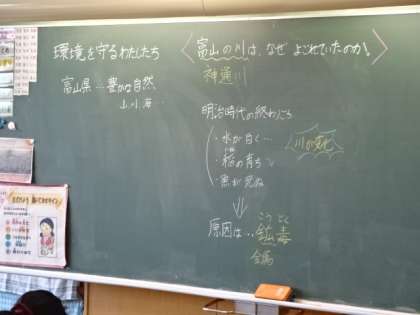 環境を守るわたしたち
富山県…豊かな自然
山川海
富山の川は、なぜよごれていたのか。
神通川
明治時代の終わりごろ
・水が白く…
・稲の育ち
・魚が死ぬ
川が変化
⇓
原因は…鉱毒
こうどく
金属